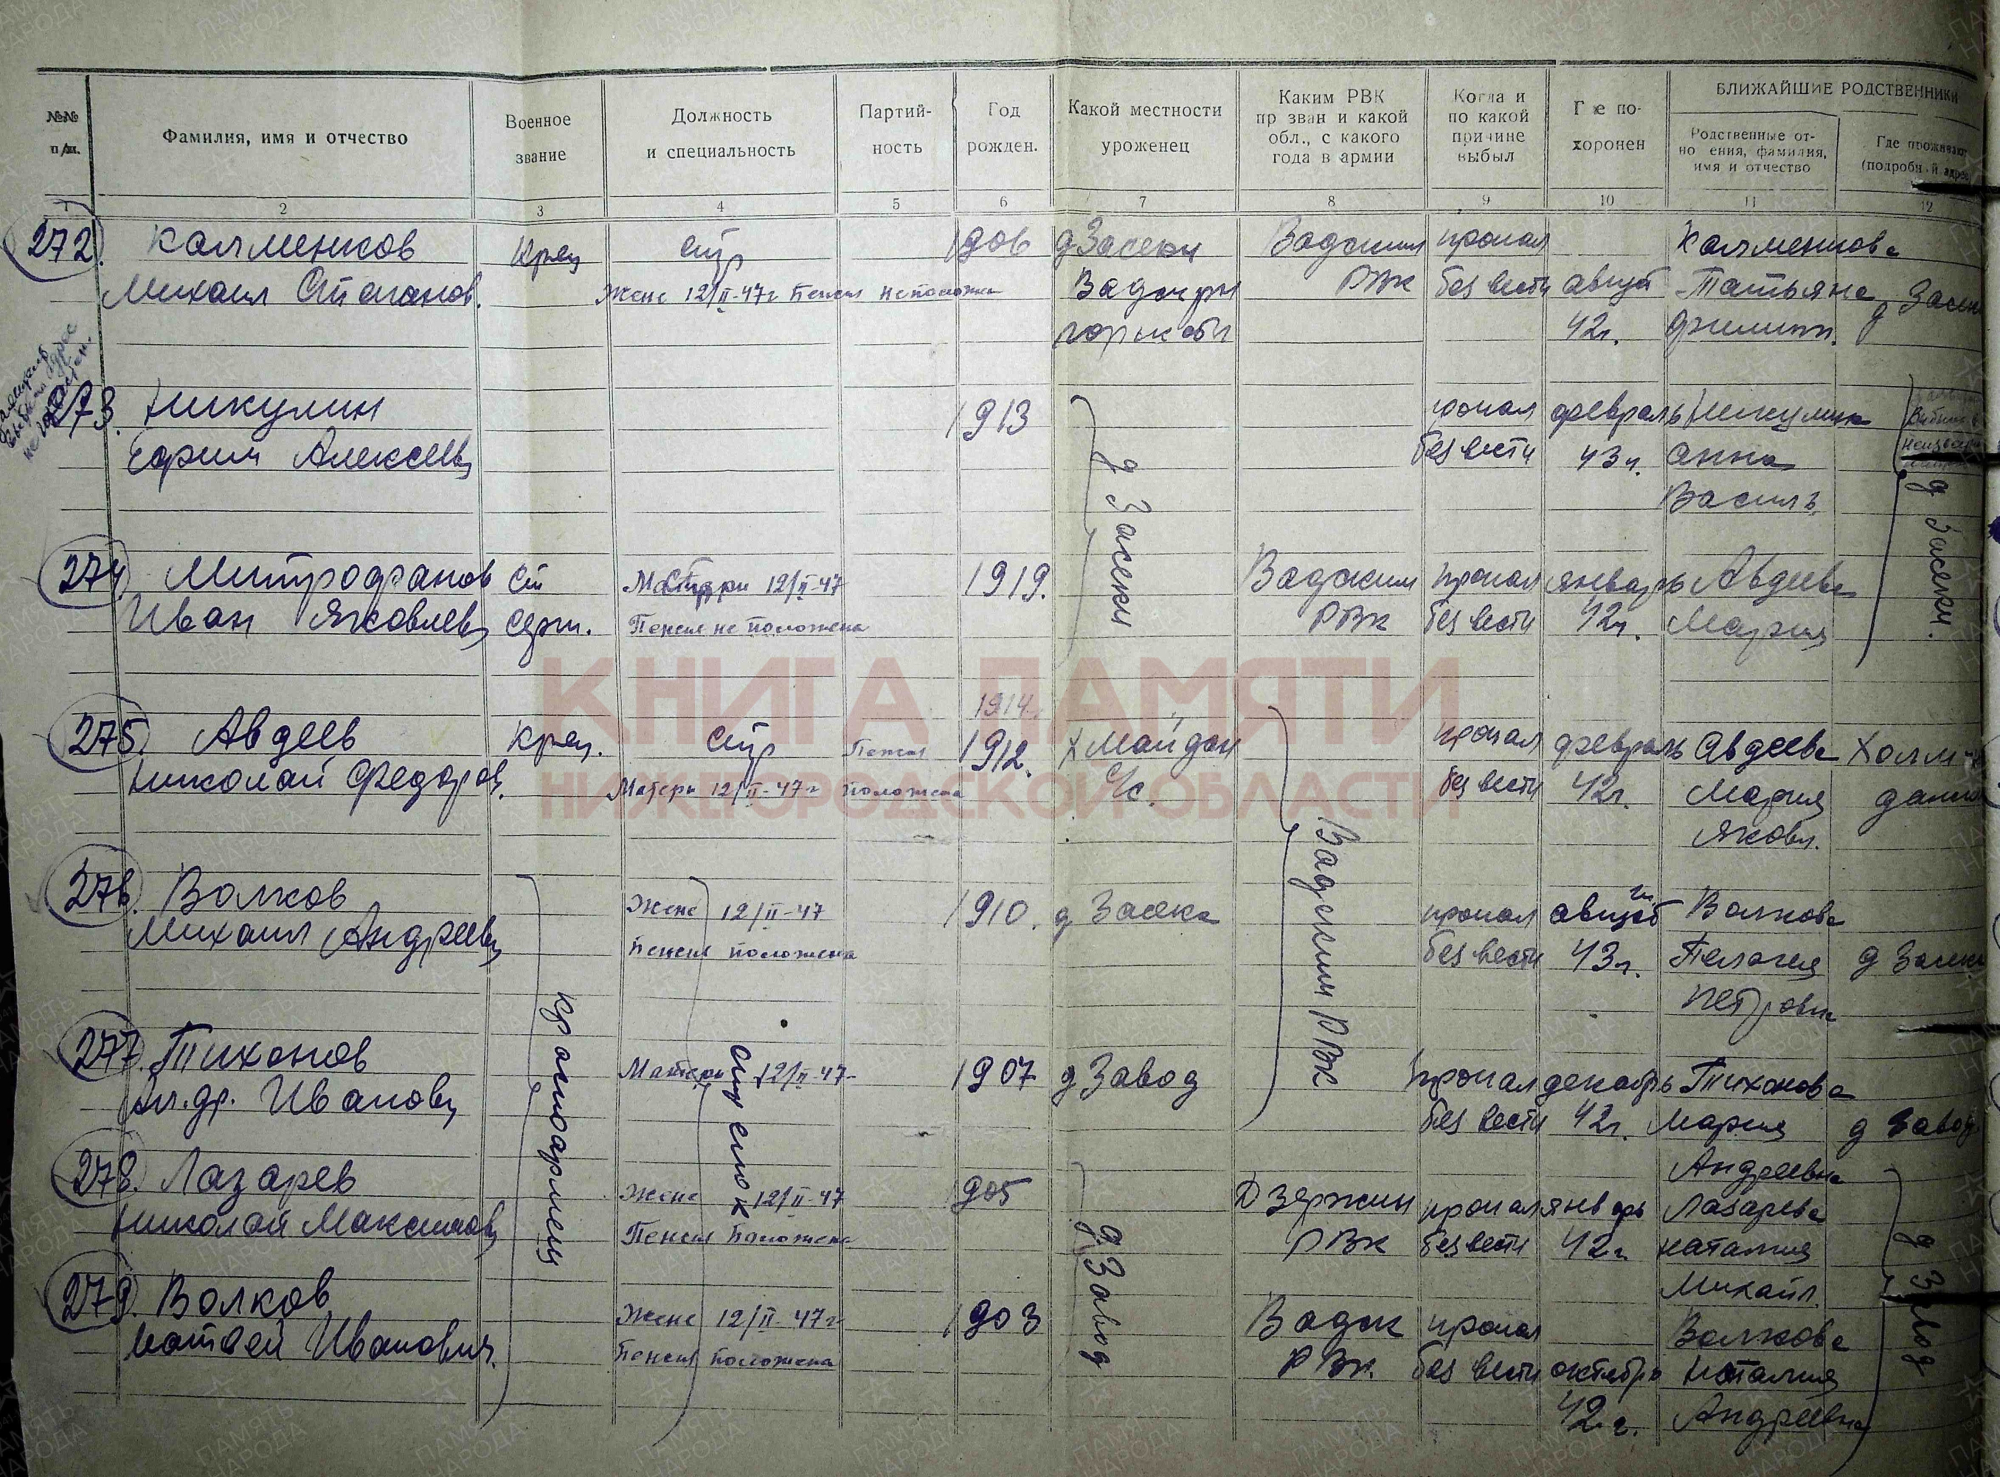 №№ п/п.
Фамилия, имя и отчество
Военное звание
Должность и специальность
Партий-ность
Год рожден.
Какой местности уроженец
Каким РВК призван и какой обл., с какого года в армии
Когда и по какой причине выбыл
Где по-хоронен
БЛИЖАЙШИЕ РОДСТВЕННИКИ
Родственные от-но ения, фамилия, имя и отчество
Где проживают (подробн й адрес)
1 2 3 4 5 6 7 8 9 10 11 12
272. Калменков Крец стр 1906 д Засеки Вадским пропал Калменкова
Михаил Степанов. Жене 12/II-47г Пенсия не положена РВК без вести август Татьяна д Засеки
42г.
273. Никулин 1913 пропал февраль Никулина
Ефрим Алексеев без вести 43г. Анна
Василь.
д Засеки
д Засеки.
274. Митрофанов Ст Матери 12/II-47 1919. Вадским пропал январь Авдеева
Иван Яковлев серж. Пенсия не положена РВК без вести 42г. Мария
1914
275. Авдеев Крец. стр Пенсия 1912. Х Майдан пропал февраль Авдеева
Николай Федоров. Матери 12/II-47г положена с/с. без вести 42г. Мария
Яковл.
Вадским РВК
276. Волков Жене 12/II-47 1910. д Засека пропал август Волкова
Михаил Андреев Пенсия положена без вести 43г. Пелагея д Засеки
Петровна
красноармеец
стрелок
277. Тихонов Матери 12/II-47- 1907 д Завод пропал декабрь Тихонова
Ал.др. Иванов без вести 42г. Мария д Завод
Андреевна
278. Лазарев Жене 12/II-47 1905 Дзержин пропал январь Лазарева
Николай Максимов Пенсия положена РВК без вести 42г Наталия
Михайл.
д Завод
д Завод
279. Волков Жене 12/II-47г 1903 Вадск пропал Волкова
Матвей Иванович. Пенсия положена РВК. без вести октябрь Наталия
42г. Андреевна
КНИГА ПАМЯТИ
НИЖЕГОРОДСКОЙ ОБЛАСТИ
ПАМЯТЬ НАРОДА